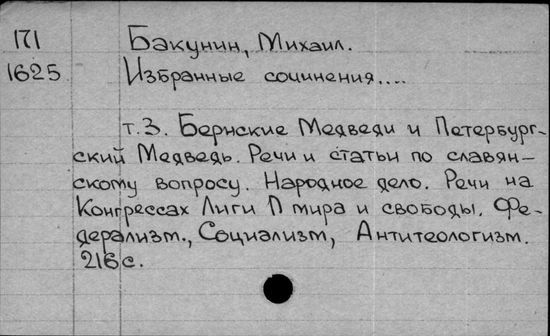 171 Бакунин, Михаил.
1625 Избранные сочинения....
т.3. Бернские Медведи и Петербург-
ский Медведь. Речи и статьи по славян-
скому вопросу. Народное дело. Речи на
Конгрессах Лиги П мира и свободы. Фе-
дерализм., Социализм, Антитеологизм.
216 с.